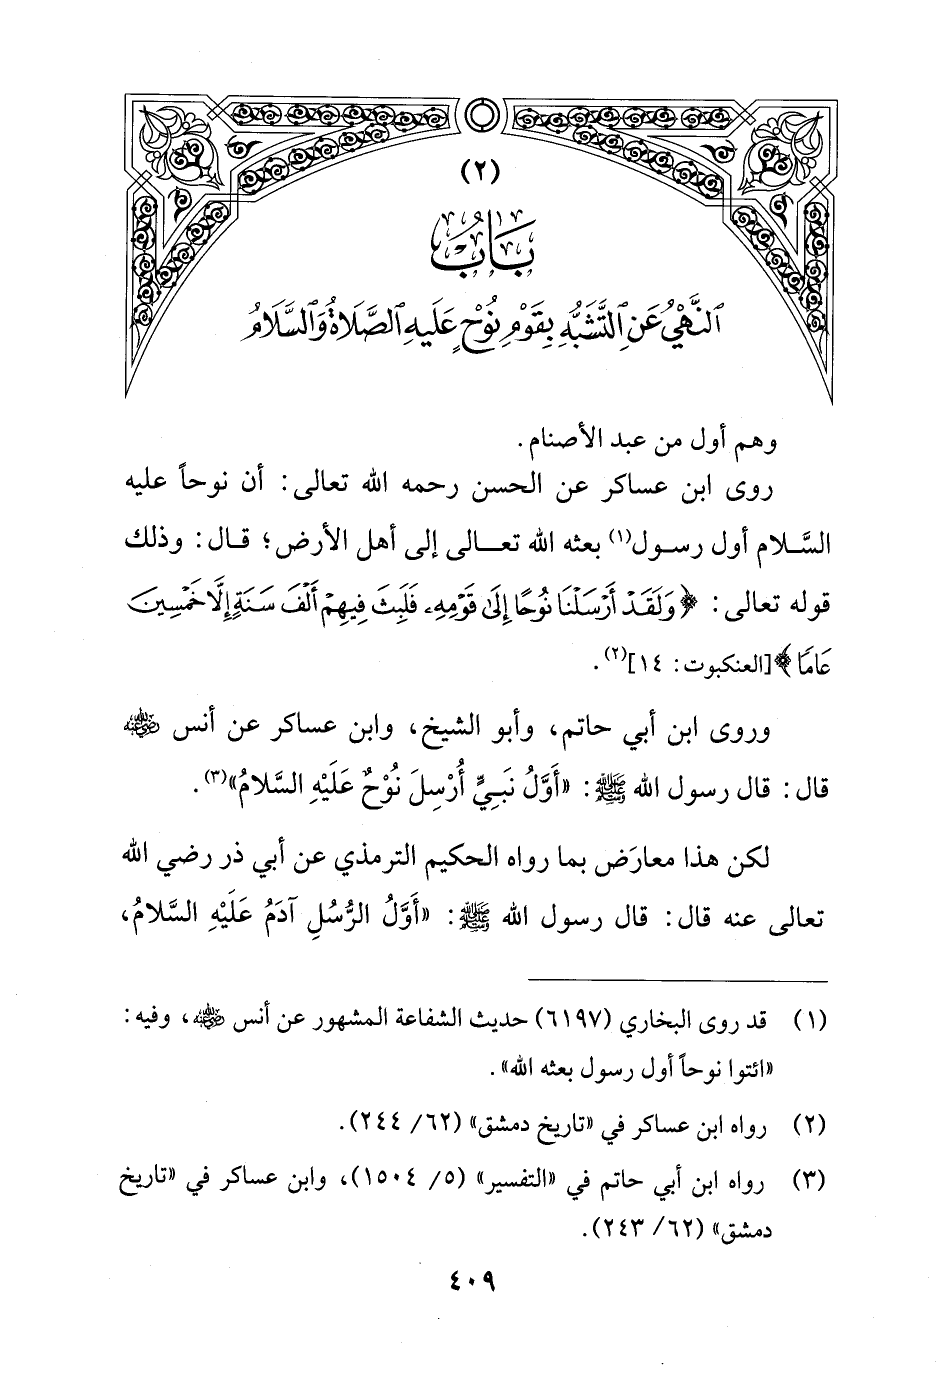 (٢)
بَابُ
النَّهْيُ عَنِ التَّشَبُّهِ بِقَوْمِ نُوْحٍ عَلَيهِ الصَّلَاةُ وَالسَّلَامُ
وهم أول من عبد الأصنام.
روى ابن عساكر عن الحسن رحمه الله تعالى: أن نوحاً عليه
السَّلام أول رسول(١) بعثه الله تعالى إلى أهل الأرض؛ قال: وذلك
قوله تعالى: ﴿وَلَقَدْ أَرْسَلْنَا نُوحًا إِلَىٰ قَوْمِهِۦ فَلَبِثَ فِيهِمْ أَلْفَ سَنَةٍ إِلَّا خَمْسِينَ
عَامًا﴾[العنكبوت: ١٤](٢).
وروى ابن أبي حاتم، وأبو الشيخ، وابن عساكر عن أنس رضي الله عنه
قال: قال رسول الله ﷺ: «أَوَّلُ نَبِيٍّ أُرْسِلَ نُوْحٌ عَلَيْهِ السَّلامُ»(٣).
لكن هذا معارَض بما رواه الحكيم الترمذي عن أبي ذر رضي الله
تعالى عنه قال: قال رسول الله ﷺ: «أَوَّلُ الرُّسُلِ آدَمُ عَلَيْهِ السَّلامُ،
(١) قد روى البخاري (٦١٩٧) حديث الشفاعة المشهور عن أنس رضي الله عنه، وفيه:
«ائتوا نوحاً أول رسول بعثه الله».
(٢) رواه ابن عساكر في «تاريخ دمشق» (٦٢/ ٢٤٤).
(٣) رواه ابن أبي حاتم في «التفسير» (٥/ ١٥٠٤)، وابن عساكر في «تاريخ
دمشق» (٦٢/ ٢٤٣).
٤٠٩